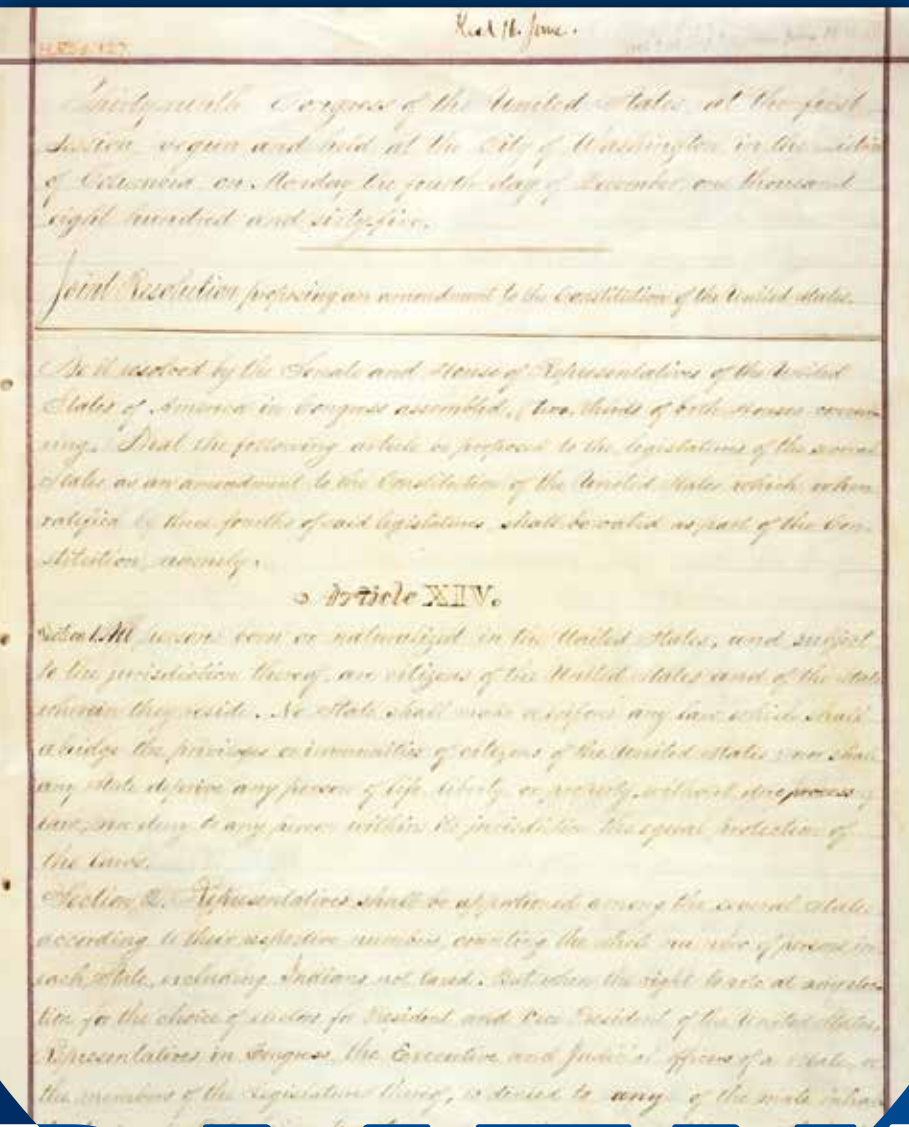 Recd 16. June.
H.Res. 127
Thirty-ninth Congress of the United States, at the first
Session, begun and held at the City of Washington, in the District
of Columbia, on Monday the fourth day of December, one thousand
eight hundred and sixty-five.
Joint Resolution proposing an amendment to the Constitution of the United States.
Be it resolved by the Senate and House of Representatives of the United
States of America in Congress assembled, (two thirds of both Houses concur-
ring,) That the following article be proposed to the legislatures of the several
States as an amendment to the Constitution of the United States, which, when
ratified by three fourths of said legislatures, shall be valid as part of the Con-
stitution, namely:
Article XIV.
Section 1. All persons born or naturalized in the United States, and subject
to the jurisdiction thereof, are citizens of the United States and of the State
wherein they reside. No State shall make or enforce any law which shall
abridge the privileges or immunities of citizens of the United States; nor shall
any State deprive any person of life, liberty, or property, without due process of
law; nor deny to any person within its jurisdiction the equal protection of
the laws.
Section 2. Representatives shall be apportioned among the several States
according to their respective numbers, counting the whole number of persons in
each State, excluding Indians not taxed. But when the right to vote at any elec-
tion for the choice of electors for President and Vice President of the United States,
Representatives in Congress, the Executive and Judicial officers of a State, or
the members of the Legislature thereof, is denied to any of the male inhab-